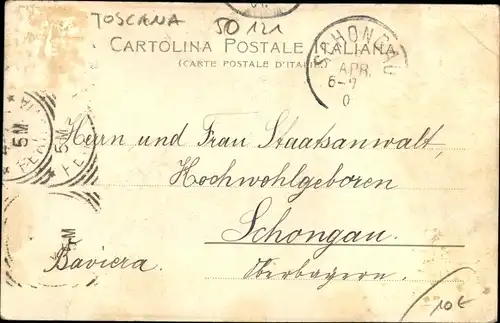 TOSCANA
50121
CARTOLINA POSTALE ITALIANA
(CARTE POSTALE D'ITALIE)
SCHONGAU
APR.
6-7
0
5 M
5 M
Herrn und Frau Staatsanwalt,
Hochwohlgeboren
Schongau.
Baviera.
Oberbayern.
10 €